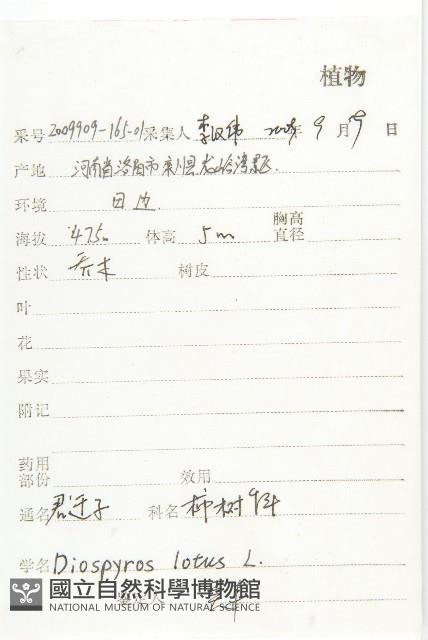 植物
采号 2009909-165-01 采集人 李汉伟 2009年 9 月 9 日
产地 河南省洛阳市栾川县龙峪湾景区.
环境 田边
海拔 475m 体高 5m 胸高直径
性状 乔木 树皮
叶
花
果实
附记
药用部份 效用
通名 君迁子 科名 柿树科
学名 Diospyros lotus L.
國立自然科學博物館
NATIONAL MUSEUM OF NATURAL SCIENCE